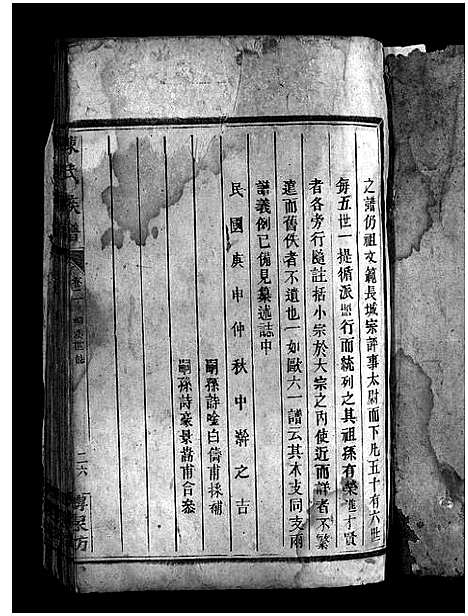 之譜仍祖文範長城宗評事太尉而下凡五十有六世
每五世一提循派照行而統列之其祖孫有榮進才賢
者各旁行隨註括小宗於大宗之內使近而詳者不繁
遠而舊佚者不遺也一如歐大一譜云其本支同支兩
譜義例已備見纂述誌中
民國庚申仲秋中澣之吉
嗣孫詩唫白儔甫採補
嗣孫詩豪景喬甫合叅
陳氏族譜
卷之一
二六